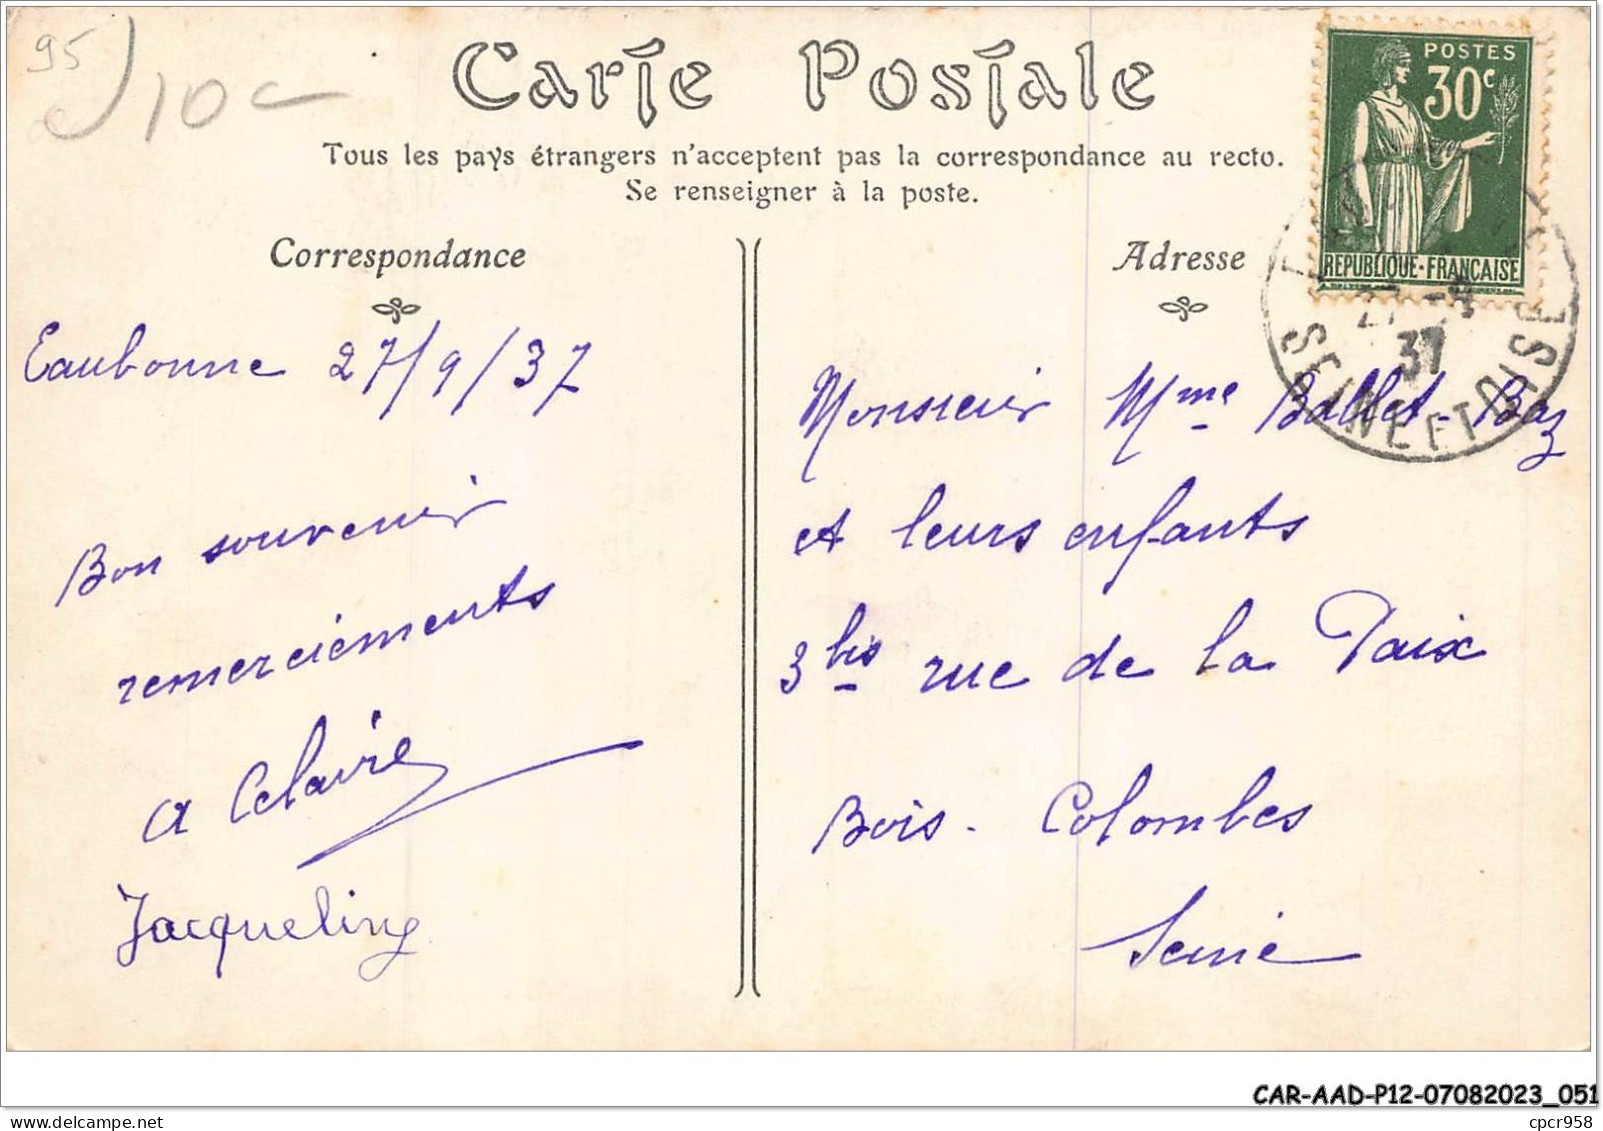 95
10c
Carte Postale
Tous les pays étrangers n'acceptent pas la correspondance au recto.
Se renseigner à la poste.
POSTES
30c
REPUBLIQUE-FRANÇAISE
37
SEINE ET OISE
Correspondance
Eaubonne 27/9/37
Bon souvenir
remerciements
a Claire
Jacqueline
Adresse
Monsieur Mme Ballet-Baz
et leurs enfants
3 bis rue de la Paix
Bois-Colombes
Seine
CAR-AAD-P12-07082023_051
delcampe.net
cpcr958